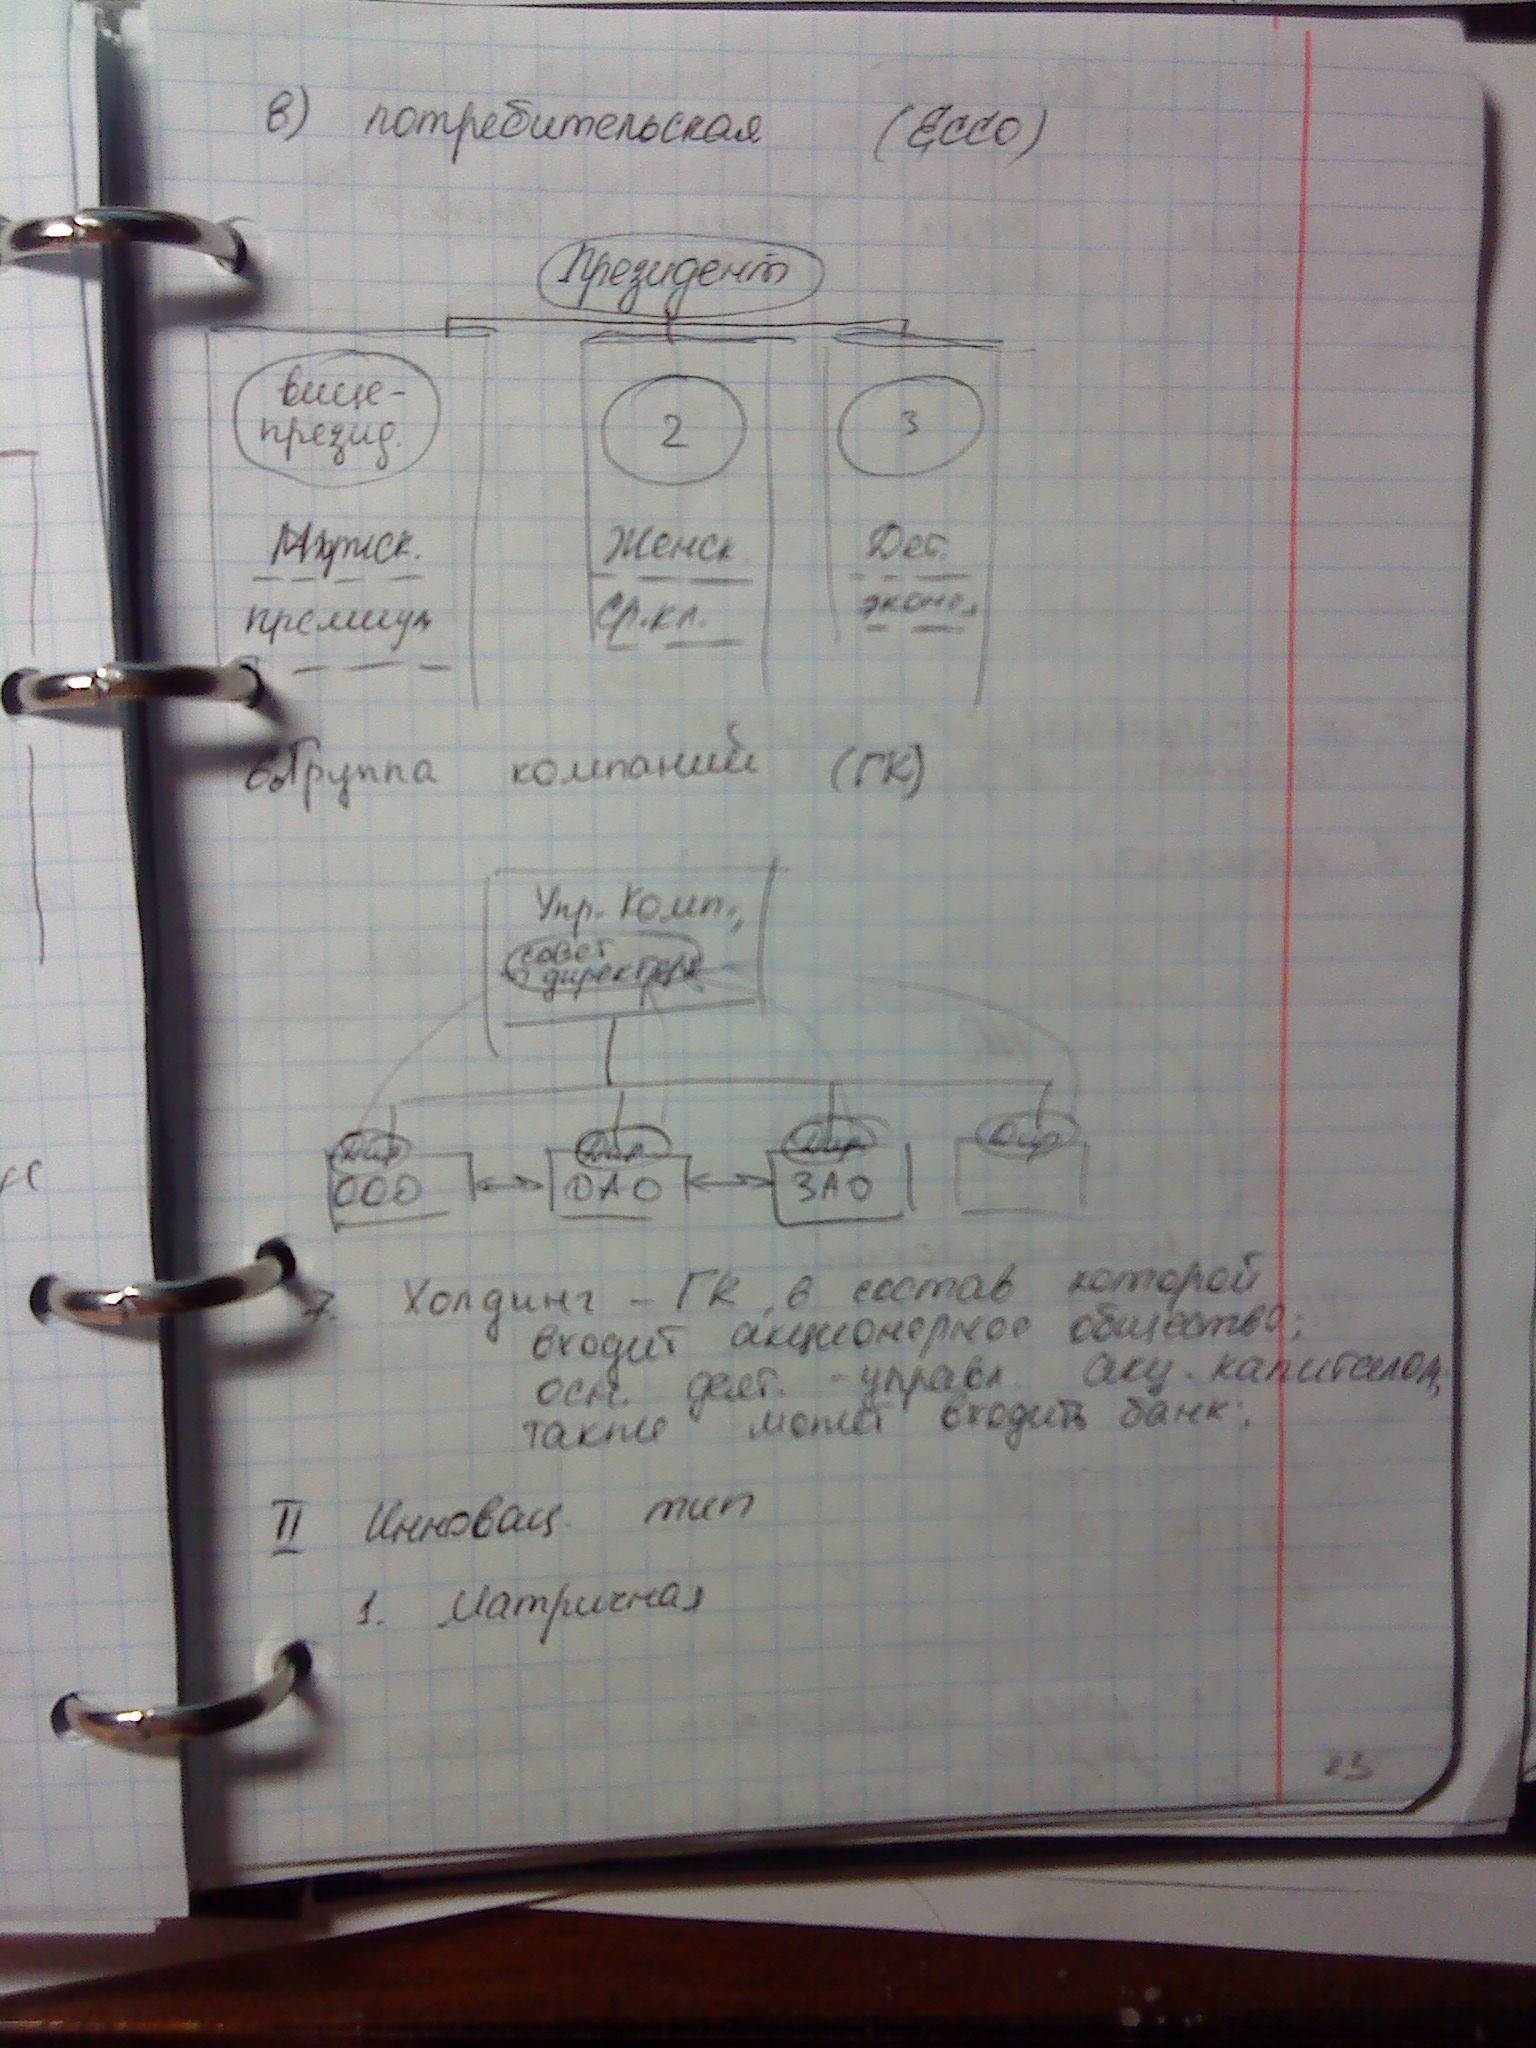 в) потребительская (Ecco)
Президент
вице-
презид.
2
3
Мужск.
Женск.
Дет.
премиум
ср.кл.
эконом
6. Группа компаний (ГК)
Упр. Комп.,
совет
директоров
Дир
Дир
Дир
Дир
ООО
ОАО
ЗАО
7. Холдинг – ГК, в состав которой
входит акционерное общество;
осн. деят. – управл. акц. капиталом,
также может входить банк.
II Инновац. тип
1. Матричная
23